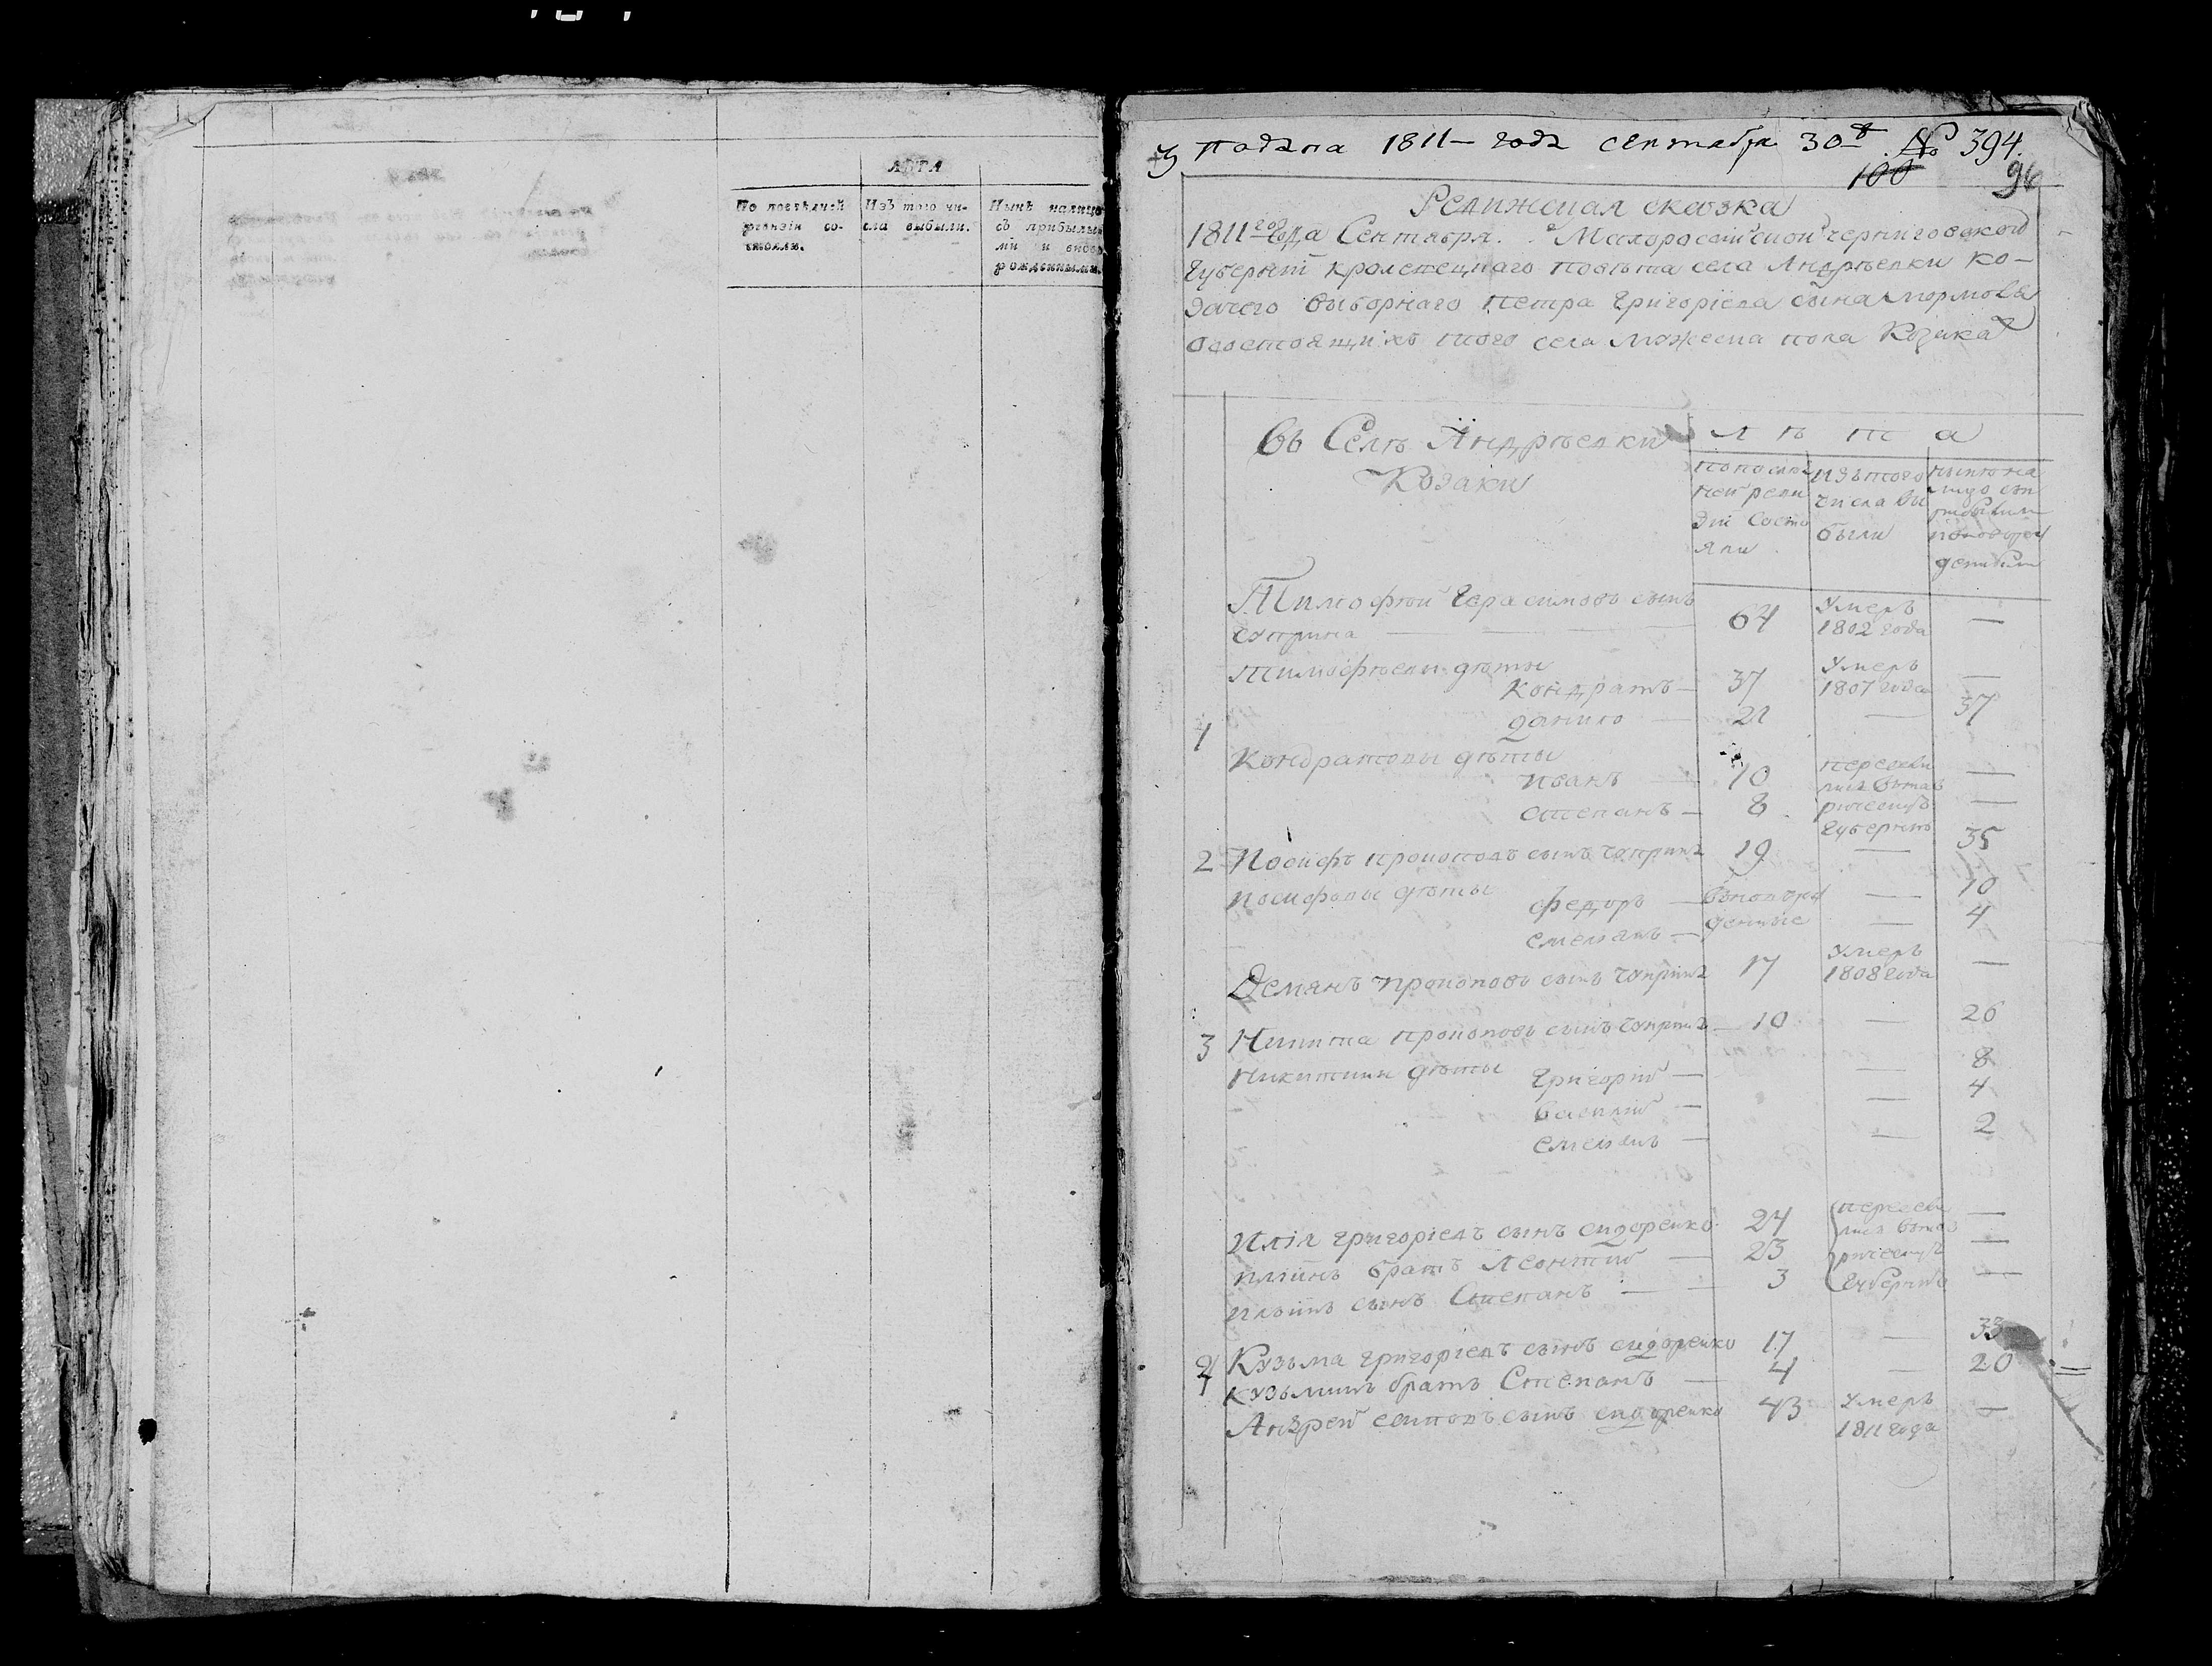 ЛѢТА
По послѣдней
ревизіи со-
стояло.
Изъ того чи-
сла выбыли.
Нынѣ налицо
съ прибылы
ми и внов
рожденными.
3 подана 1811 – года сентября 30 д. № 394.
100 96
Ревижская сказка
1811 го года Сентября. Малоросійской черниговской
губерніи кролевецкаго повѣта села Андрѣевки ко-
зачего выборнаго петра григоріева сына
о состоящихъ того села мужеска пола козака
Въ Селѣ Андрѣевки
Козаки
л ѣ т а
попослѣд
ней реви
зіи состо
яли
изъ того
числа вы
были
нынѣ на
лицо
Тимофей Герасимовъ сынъ
чуприна — 64 умеръ 1802 года —
Тимофѣевы дѣти
Кондратъ – 37 умеръ 1807 года —
1 данило — 21 — 37
Кондратовы дѣты
иванъ — 10 —
степанъ – 8 —
губернію
2 Иосифъ прокоповъ сынъ чуприна 19 — 35
иосифовы дѣты федоръ — вновь рож — 10
емелянъ – денные — 4
Демянъ прокоповъ сынъ чуприна 17 умеръ 1808 года —
3 Никита прокоповъ сынъ чуприна – 10 — 26
никитини дѣты григорій — — 8
василій — — 4
емелянъ — — 2
Илія григоріевъ сынъ сидоренко 24 пересели —
иліинъ братъ Леонтій — 23 —
ильинъ сынъ Степанъ — — 3 губернію —
4 Кузьма григоріевъ сынъ сидоренко 17 — 33
кузьминъ братъ Степанъ — 4 — 20
Андрей сынъ сидоренко 43 умеръ 1811 года —